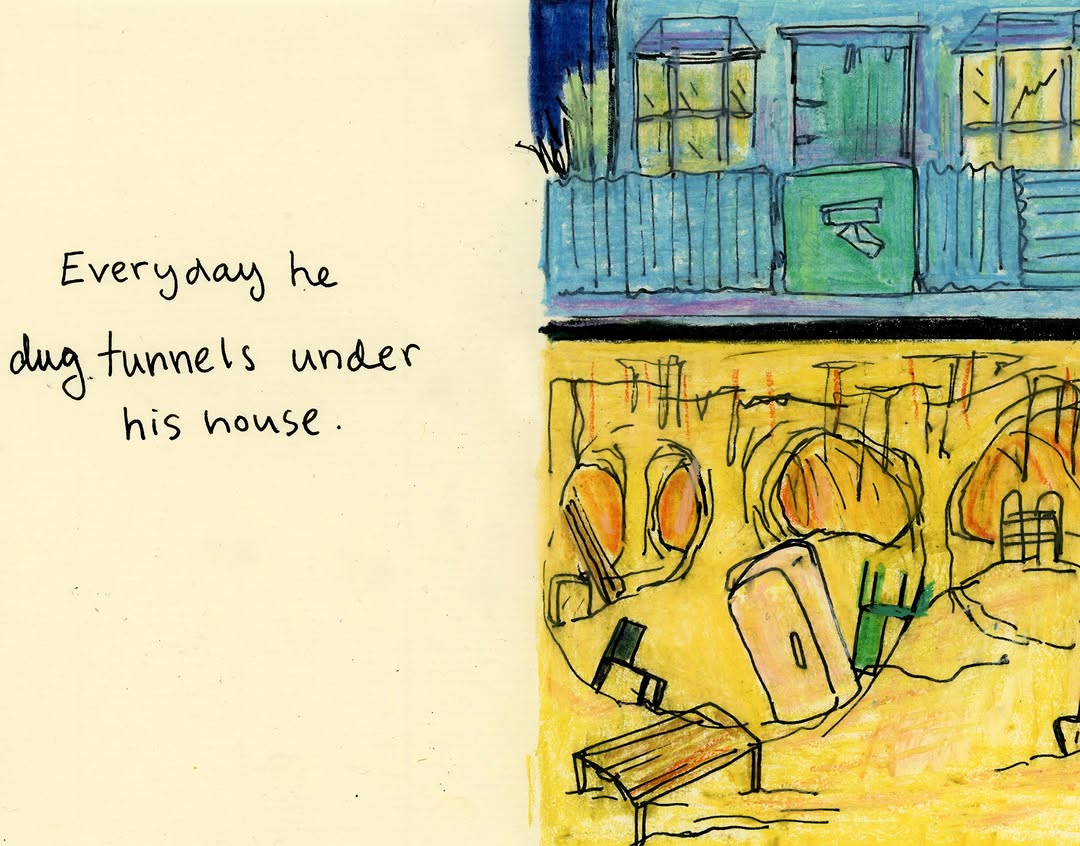 Everyday he
dug tunnels under
his house.